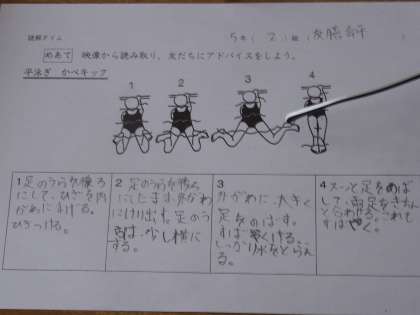 読解タイム
5年(2)組(
めあて 映像から読み取り、友だちにアドバイスをしよう。
平泳ぎ かべキック
1 2 3 4
1 足のうらを後ろ
にして、ひざを内
がわに
ひきつける。
2 足のうらを後ろ
にしたまま、外がわ
にけり出す。足のう
らは、少し横に
する。
3
外がわに、大きく
足をのばす。
すばやくける。
しっかり水をとらえ
る。
4 スーッと足をのば
して、両足をきちん
と合わせる。これも
すばやく。